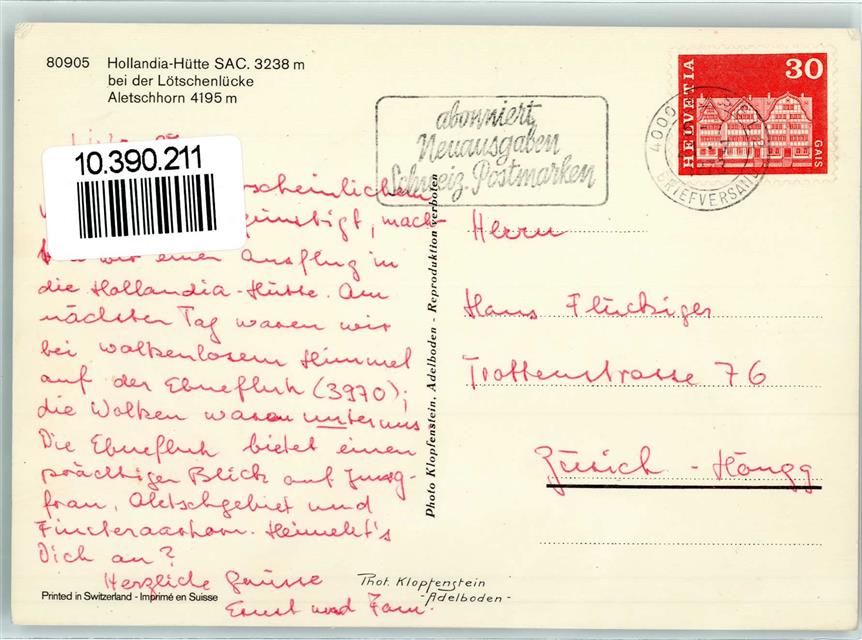 80905 Hollandia-Hütte SAC. 3238 m
bei der Lötschenlücke
Aletschhorn 4195 m
abonniert
Neuausgaben
Schweiz. Postmarken
4000
BRIEFVERSAND
HELVETIA
30
GAIS
10.390.211
günstigt, mach-
wir einen Ausflug in
die Hollandia-Hütte. Am
nächsten Tag waren wir
bei wolkenlosem Himmel
auf der Ebnefluh (3970);
die Wolken waren unter uns
Die Ebnefluh bietet einen
prächtigen Blick auf Jung-
frau, Aletschgebiet und
Finsteraarhorn. Heimelt's
Dich an?
Herzliche Grüsse
Ernst und Fam.
Photo Klopfenstein, Adelboden - Reproduktion verboten
Herrn
Hans Flückiger
Trottenstrasse 76
Zürich - Höngg
Phot. Klopfenstein
- Adelboden -
Printed in Switzerland - Imprimé en Suisse